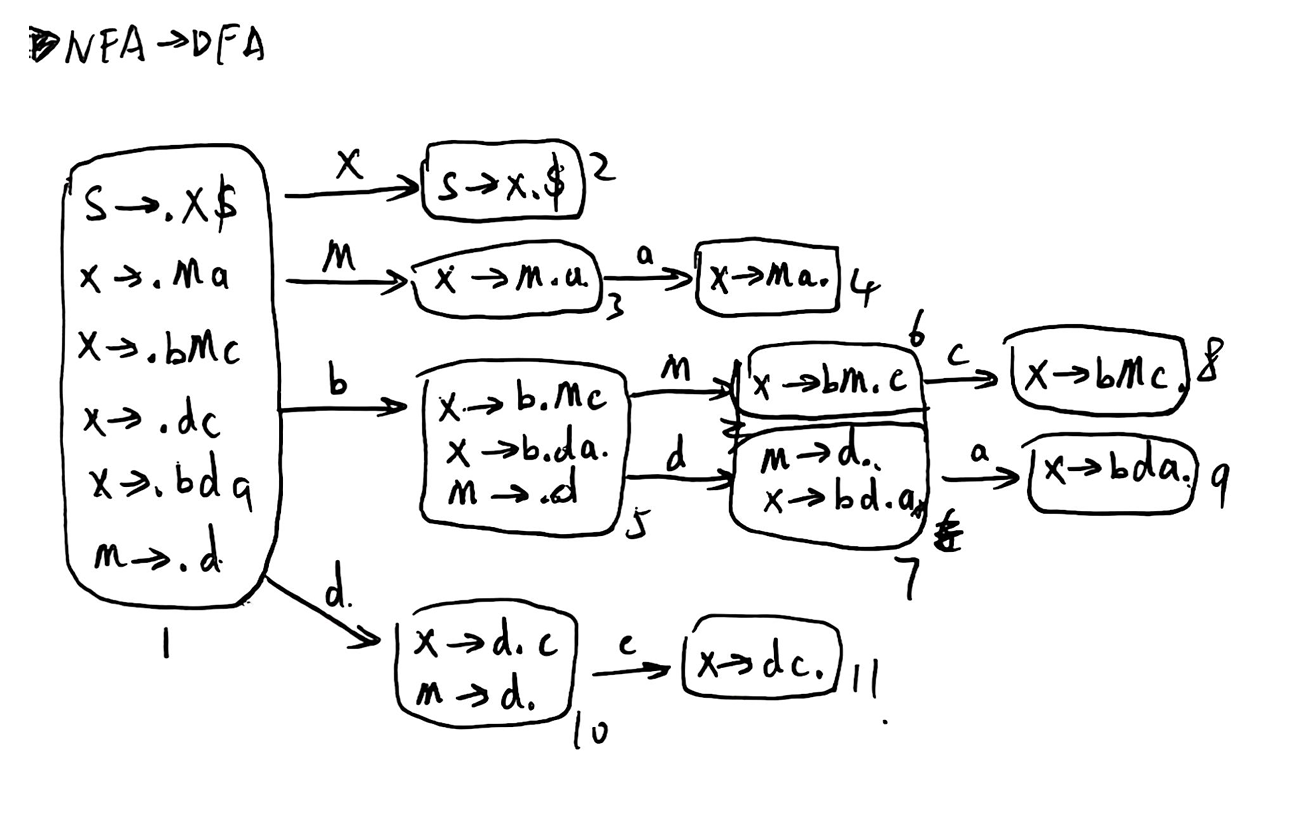 NFA→DFA
S→.X$
X→.Ma
X→.bMc
X→.dc
X→.bda
M→.d
1
X
S→X.$
2
M
X→M.a
3
a
X→Ma.
4
b
X→b.Mc
X→b.da.
M→.d
5
M
X→bM.c
6
c
X→bMc.
8
d
M→d.
X→bd.a
7
a
X→bda.
9
d.
X→d.c
M→d.
10
c
X→dc.
11